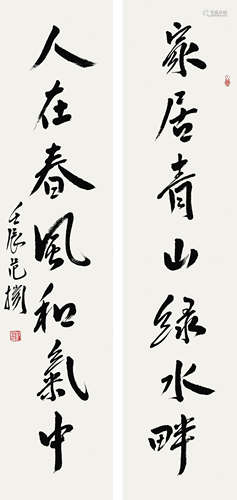 家居青山緑水畔
人在春風和氣中
壬辰范擱